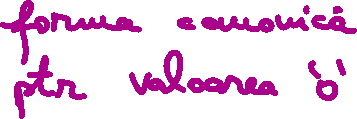 forma canonică
ptr valoarea 'o'